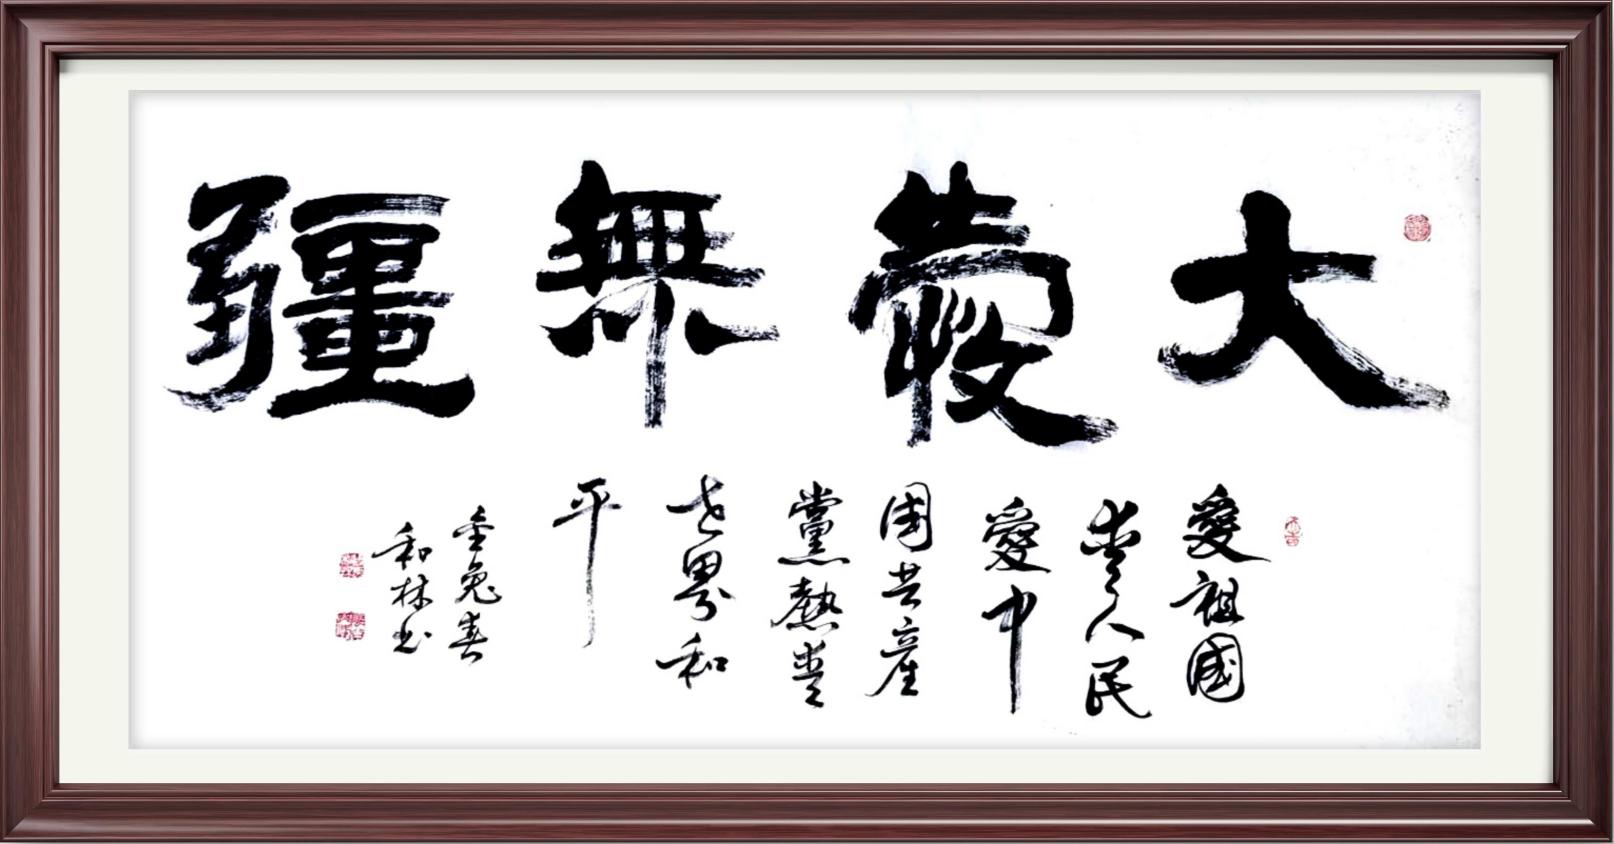 大愛無疆
愛祖國
愛人民
愛中
國共產
黨熱愛
世界和
平
金兔春
和林书